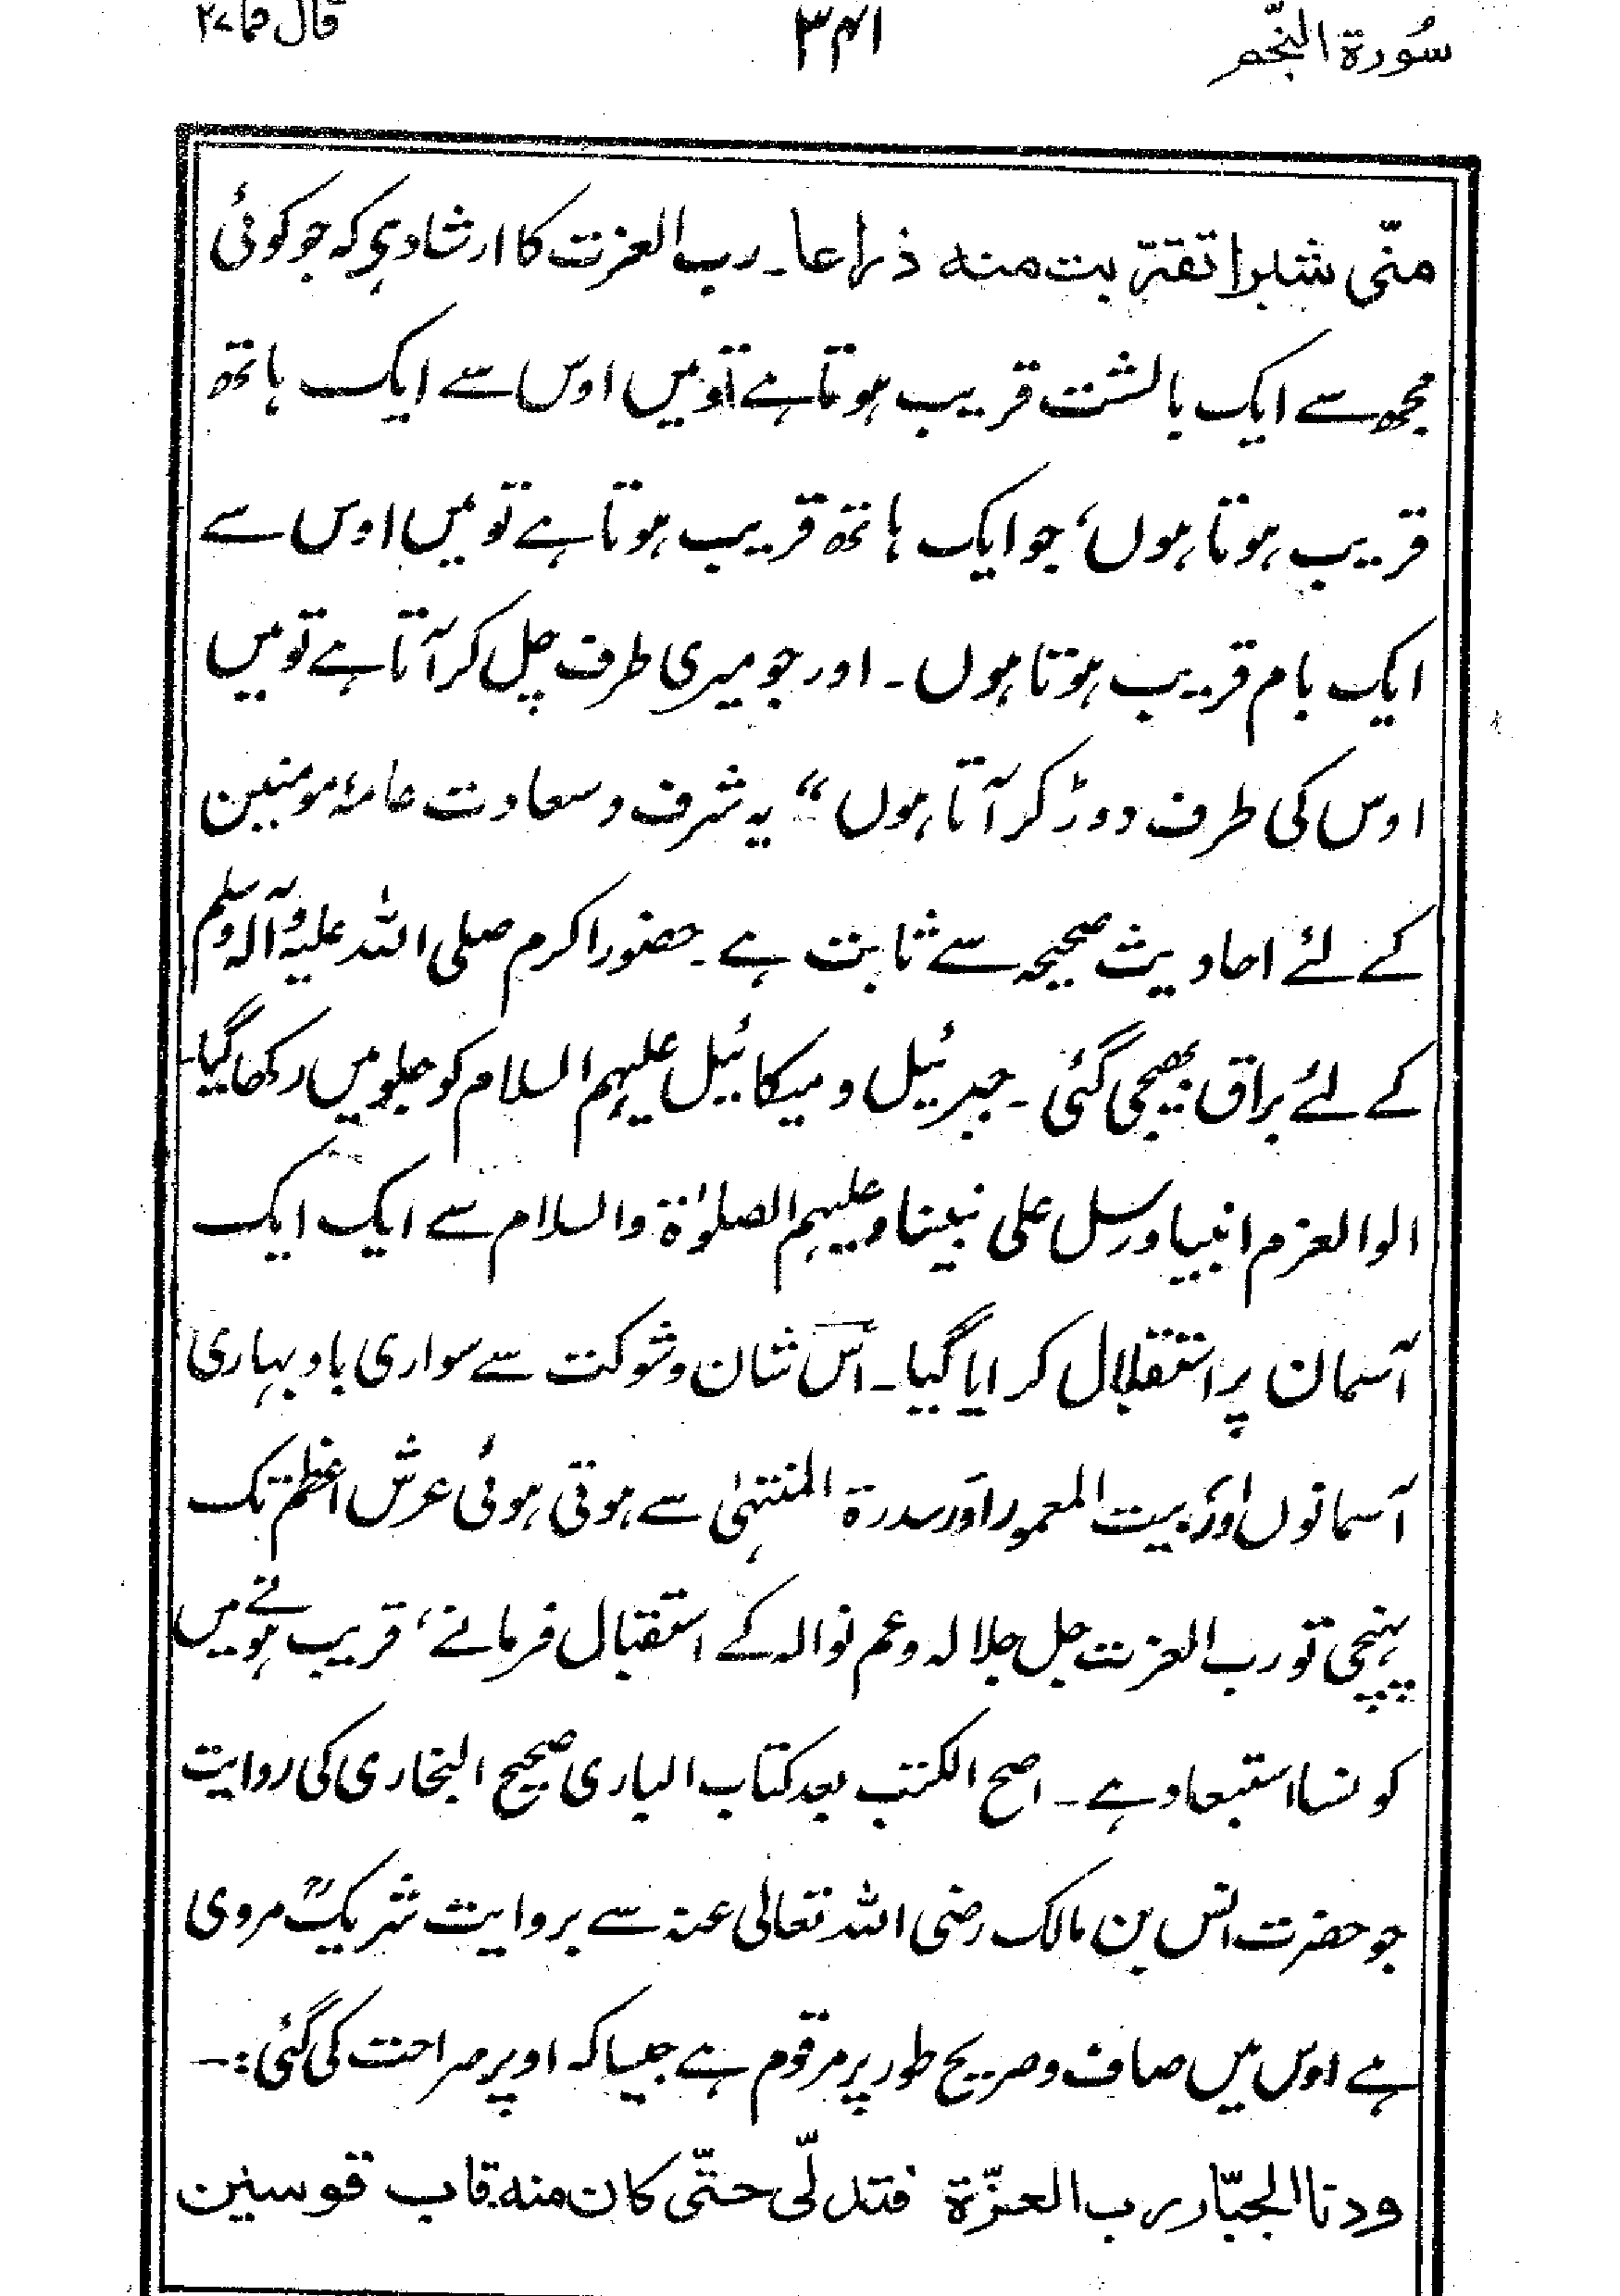 سُورۃ النّجم
۳۴۱
قال فما ۲۷
منّی شبرا تقتربت منہ ذراعا۔ رب العزت کا ارشاد ہے کہ جو کوئی
مجھ سے ایک بالشت قریب ہوتا ہے تو میں اوس سے ایک ہاتھ
قریب ہوتا ہوں، جو ایک ہاتھ قریب ہوتا ہے تو میں اوس سے
ایک بام قریب ہوتا ہوں۔ اور جو میری طرف چل کر آتا ہے تو میں
اوس کی طرف دوڑ کر آتا ہوں“ یہ شرف و سعادت عامۂ مومنین
کے لئے احادیث صحیحہ سے ثابت ہے۔ حضور اکرم صلی اللہ علیہ وآلہ وسلم
کے لئے براق بھیجی گئی۔ جبرئیل و میکائیل علیہم السلام کو جلو میں رکھا گیا۔
الوالعزم انبیا و رسل علی نبینا وعلیہم الصلوٰۃ والسلام سے ایک ایک
آسمان پر استقلال کرایا گیا۔ اس شان و شوکت سے سواری باد بہاری
آسمانوں اور بیت المعمور اور سدرۃ المنتہیٰ سے ہوتی ہوئی عرش اعظم تک
پہنچی تو رب العزت جل جلالہ وعم نوالہ کے استقبال فرمانے، قریب ہونے میں
کونسا استبعاد ہے۔ اصح الکتب بعد کتاب الباری صحیح البخاری کی روایت
جو حضرت انس بن مالک رضی اللہ تعالی عنہ سے بروایت شریکؒ مروی
ہے اوس میں صاف و صریح طور پر مرقوم ہے جیسا کہ اوپر صراحت کی گئی :۔
ودنا الجبّار رب العزّۃ فتدلّی حتّی کان منہ قاب قوسین